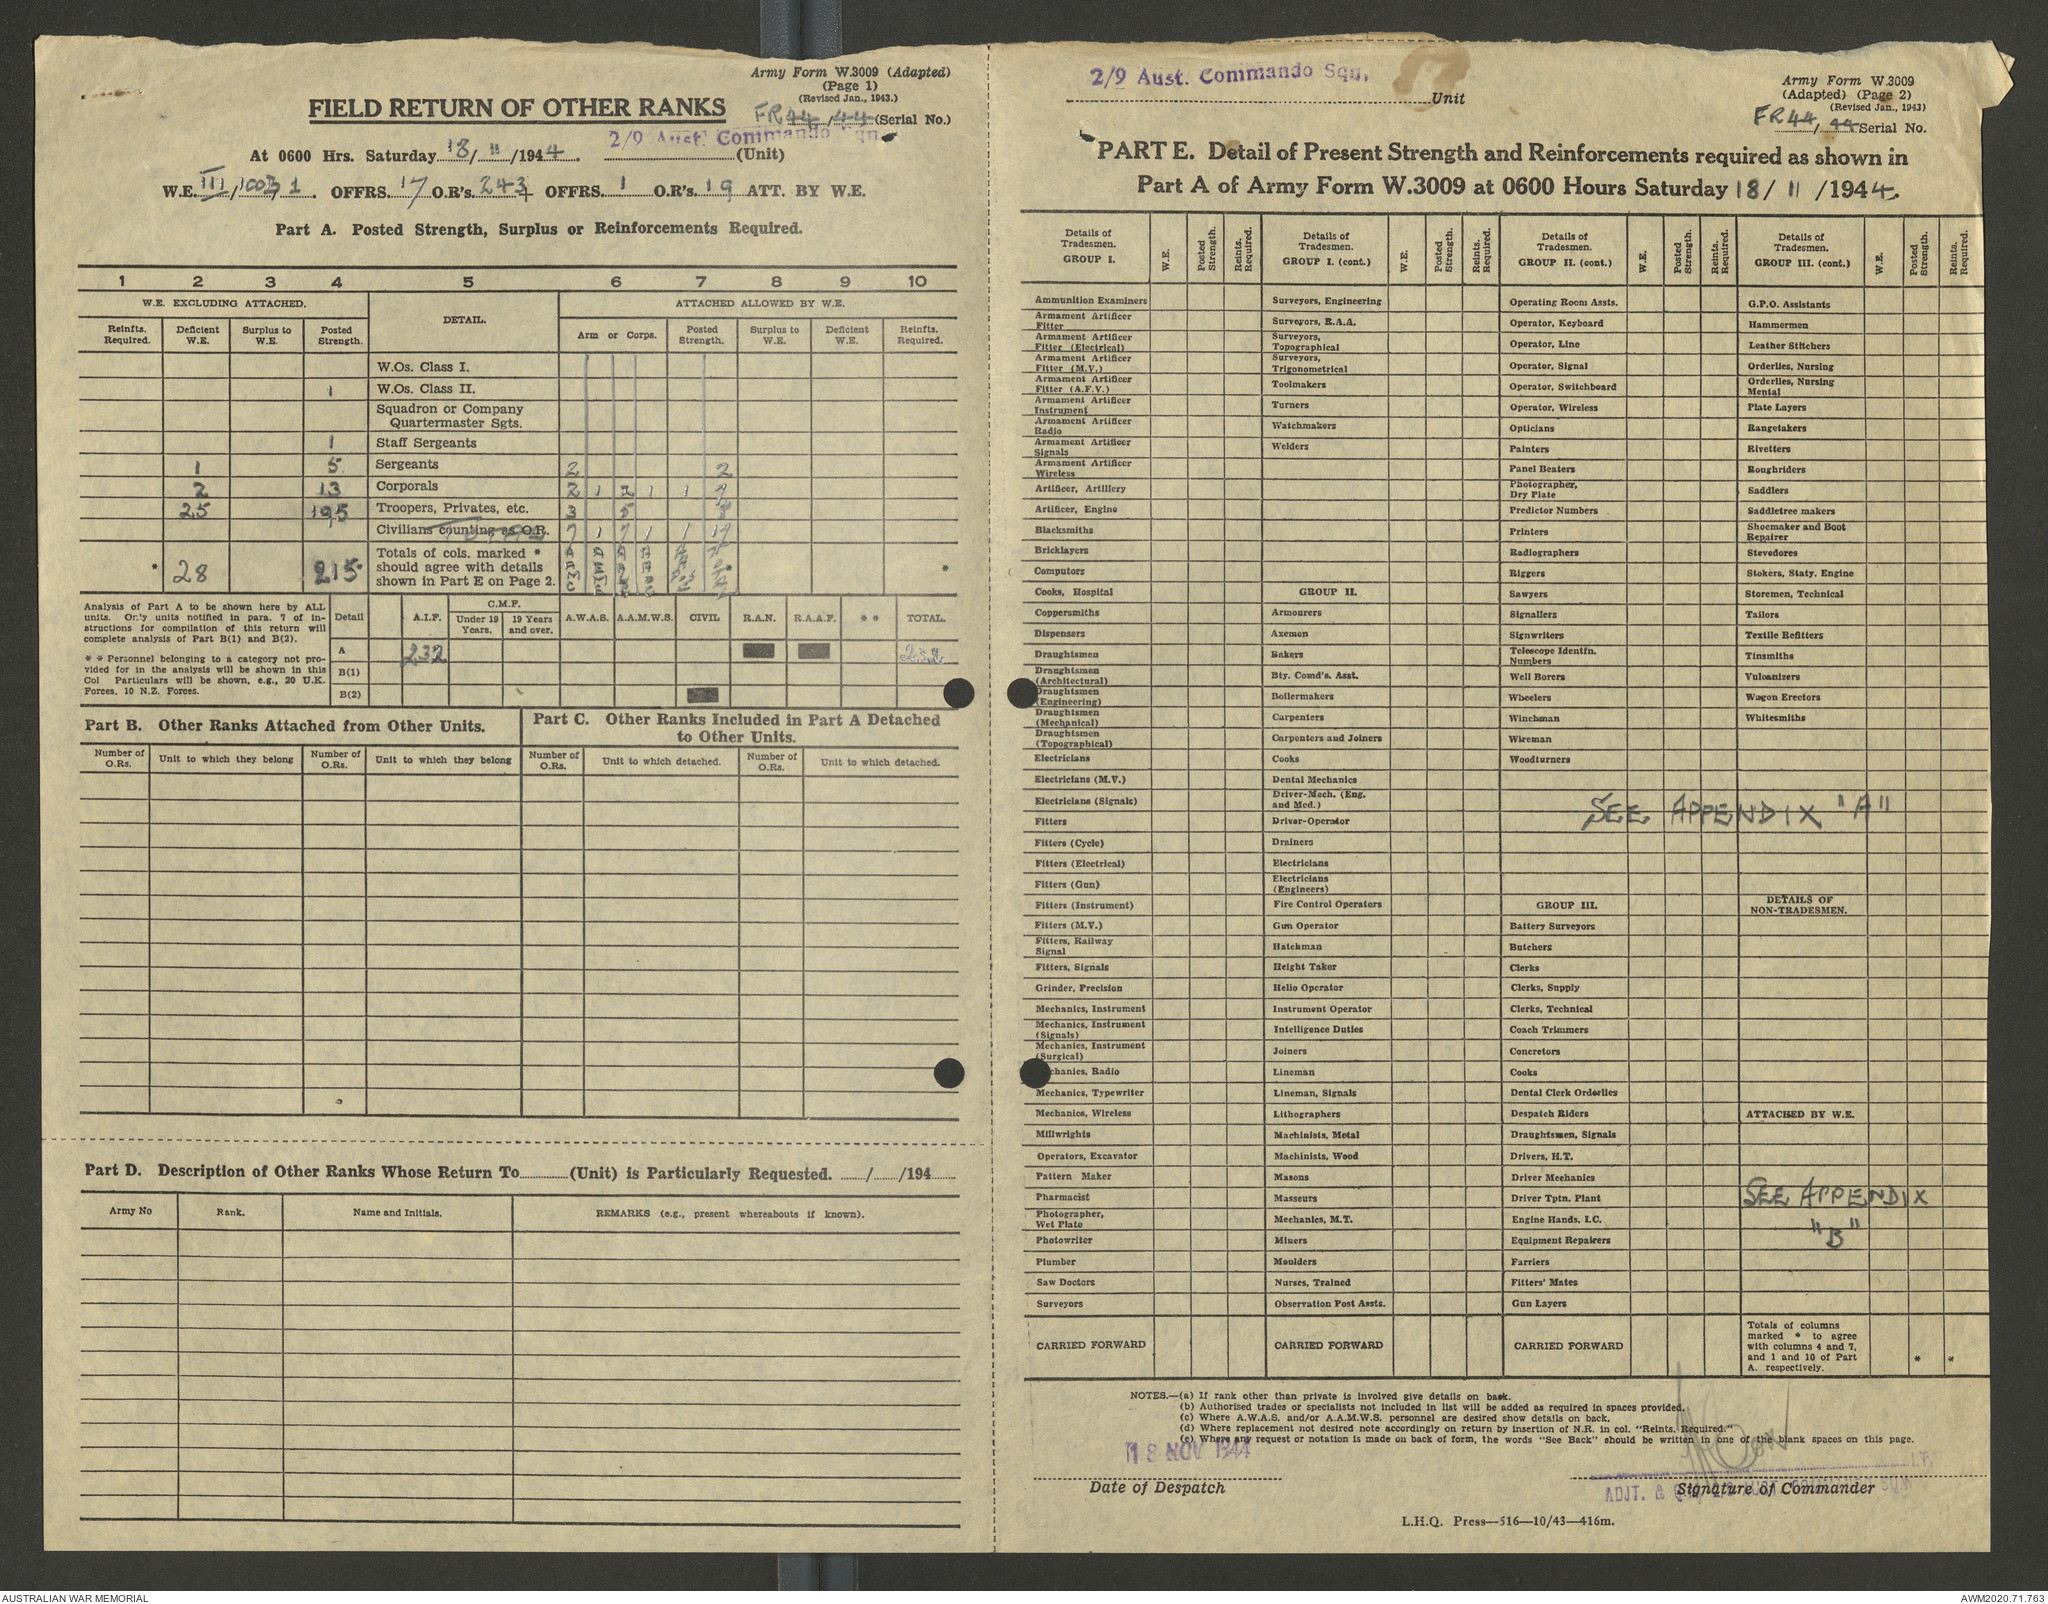 Army Form W.3009 (Adapted)
(Page 1)
(Revised Jan., 1943.)
FIELD RETURN OF OTHER RANKS
FR 44 / 44 (Serial No.)
2/9 Aust. Commando Sqn
At 0600 Hrs. Saturday 18/ 11 /1944. (Unit)
W.E. III / OFFRS. 17 O.R's. 243 OFFRS. 1 O.R's. 19 ATT. BY W.E.
Part A. Posted Strength, Surplus or Reinforcements Required.
1 2 3 4 5 6 7 8 9 10
W.E. EXCLUDING ATTACHED. DETAIL. ATTACHED ALLOWED BY W.E.
Reinfts. Required. Deficient W.E. Surplus to W.E. Posted Strength. Arm or Corps. Posted Strength. Surplus to W.E. Deficient W.E. Reinfts. Required.
W.Os. Class I.
1 W.Os. Class II.
Squadron or Company
Quartermaster Sgts.
1 Staff Sergeants
1 5 Sergeants 2 2
2 13 Corporals 2 1 2 1 1 7
25 195 Troopers, Privates, etc. 3 5
Civilians counting as O.R. 7 1 7 1 1 17
Totals of cols. marked *
should agree with details
* 28 215* shown in Part E on Page 2. * *
Analysis of Part A to be shown here by ALL
units. Only units notified in para. 7 of in-
structions for compilation of this return will
complete analysis of Part B(1) and B(2).
* * Personnel belonging to a category not pro-
vided for in the analysis will be shown in this
Col Particulars will be shown, e.g., 20 U.K.
Forces, 10 N.Z. Forces.
Detail A.I.F. C.M.F. Under 19 Years. 19 Years and over. A.W.A.S. A.A.M.W.S. CIVIL R.A.N. R.A.A.F. * * TOTAL.
A 232 232
B(1)
B(2)
Part B. Other Ranks Attached from Other Units.
Number of O.Rs. Unit to which they belong Number of O.Rs. Unit to which they belong
Part C. Other Ranks Included in Part A Detached
to Other Units.
Number of O.Rs. Unit to which detached. Number of O.Rs. Unit to which detached.
Part D. Description of Other Ranks Whose Return To (Unit) is Particularly Requested. / /194
Army No Rank. Name and Initials. REMARKS (e.g., present whereabouts if known).
2/9 Aust. Commando Sqn.
Unit
Army Form W.3009
(Adapted) (Page 2)
(Revised Jan., 1943)
FR 44 / 44 Serial No.
PART E. Detail of Present Strength and Reinforcements required as shown in
Part A of Army Form W.3009 at 0600 Hours Saturday 18/ 11 /1944.
Details of Tradesmen. GROUP I. W.E. Posted Strength. Reints. Required.
Ammunition Examiners
Armament Artificer Fitter
Armament Artificer Fitter (Electrical)
Armament Artificer Fitter (M.V.)
Armament Artificer Fitter (A.F.V.)
Armament Artificer Instrument
Armament Artificer Radio
Armament Artificer Signals
Armament Artificer Wireless
Artificer, Artillery
Artificer, Engine
Blacksmiths
Bricklayers
Computors
Cooks, Hospital
Coppersmiths
Dispensers
Draughtsmen
Draughtsmen (Architectural)
Draughtsmen (Engineering)
Draughtsmen (Mechanical)
Draughtsmen (Topographical)
Electricians
Electricians (M.V.)
Electricians (Signals)
Fitters
Fitters (Cycle)
Fitters (Electrical)
Fitters (Gun)
Fitters (Instrument)
Fitters (M.V.)
Fitters, Railway Signal
Fitters, Signals
Grinder, Precision
Mechanics, Instrument
Mechanics, Instrument (Signals)
Mechanics, Instrument (Surgical)
chanics, Radio
Mechanics, Typewriter
Mechanics, Wireless
Millwrights
Operators, Excavator
Pattern Maker
Pharmacist
Photographer, Wet Plate
Photowriter
Plumber
Saw Doctors
Surveyors
CARRIED FORWARD
Details of Tradesmen. GROUP I. (cont.) W.E. Posted Strength. Reints. Required.
Surveyors, Engineering
Surveyors, R.A.A.
Surveyors, Topographical
Surveyors, Trigonometrical
Toolmakers
Turners
Watchmakers
Welders
GROUP II.
Armourers
Axemen
Bakers
Bty. Comd's. Asst.
Boilermakers
Carpenters
Carpenters and Joiners
Cooks
Dental Mechanics
Driver-Mech. (Eng. and Med.)
Driver-Operator
Drainers
Electricians
Electricians (Engineers)
Fire Control Operators
Gun Operator
Hatchman
Height Taker
Helio Operator
Instrument Operator
Intelligence Duties
Joiners
Lineman
Lineman, Signals
Lithographers
Machinists, Metal
Machinists, Wood
Masons
Masseurs
Mechanics, M.T.
Miners
Moulders
Nurses, Trained
Observation Post Assts.
CARRIED FORWARD
Details of Tradesmen. GROUP II. (cont.) W.E. Posted Strength. Reints. Required.
Operating Room Assts.
Operator, Keyboard
Operator, Line
Operator, Signal
Operator, Switchboard
Operator, Wireless
Opticians
Painters
Panel Beaters
Photographer, Dry Plate
Predictor Numbers
Printers
Radiographers
Riggers
Sawyers
Signallers
Signwriters
Telescope Identfn. Numbers
Well Borers
Wheelers
Winchman
Wireman
Woodturners
SEE APPENDIX "A"
GROUP III.
Battery Surveyors
Butchers
Clerks
Clerks, Supply
Clerks, Technical
Coach Trimmers
Concretors
Cooks
Dental Clerk Orderlies
Despatch Riders
Draughtsmen, Signals
Drivers, H.T.
Driver Mechanics
Driver Tptn. Plant
Engine Hands, I.C.
Equipment Repairers
Farriers
Fitters' Mates
Gun Layers
CARRIED FORWARD
Details of Tradesmen. GROUP III. (cont.) W.E. Posted Strength. Reints. Required.
G.P.O. Assistants
Hammermen
Leather Stitchers
Orderlies, Nursing
Orderlies, Nursing Mental
Plate Layers
Rangetakers
Rivetters
Roughriders
Saddlers
Saddletree makers
Shoemaker and Boot Repairer
Stevedores
Stokers, Staty. Engine
Storemen, Technical
Tailors
Textile Refitters
Tinsmiths
Vulcanizers
Wagon Erectors
Whitesmiths
DETAILS OF
NON-TRADESMEN.
ATTACHED BY W.E.
SEE APPENDIX
"B"
Totals of columns
marked * to agree
with columns 4 and 7,
and 1 and 10 of Part
A. respectively. * *
NOTES.—(a) If rank other than private is involved give details on back.
(b) Authorised trades or specialists not included in list will be added as required in spaces provided.
(c) Where A.W.A.S. and/or A.A.M.W.S. personnel are desired show details on back.
(d) Where replacement not desired note accordingly on return by insertion of N.R. in col. "Reints. Required."
(e) Where any request or notation is made on back of form, the words "See Back" should be written in one of the blank spaces on this page.
18 NOV 1944
Date of Despatch
ADJT. &
Signature of Commander
L.H.Q. Press—516—10/43—416m.
AUSTRALIAN WAR MEMORIAL
AWM2020.71.763